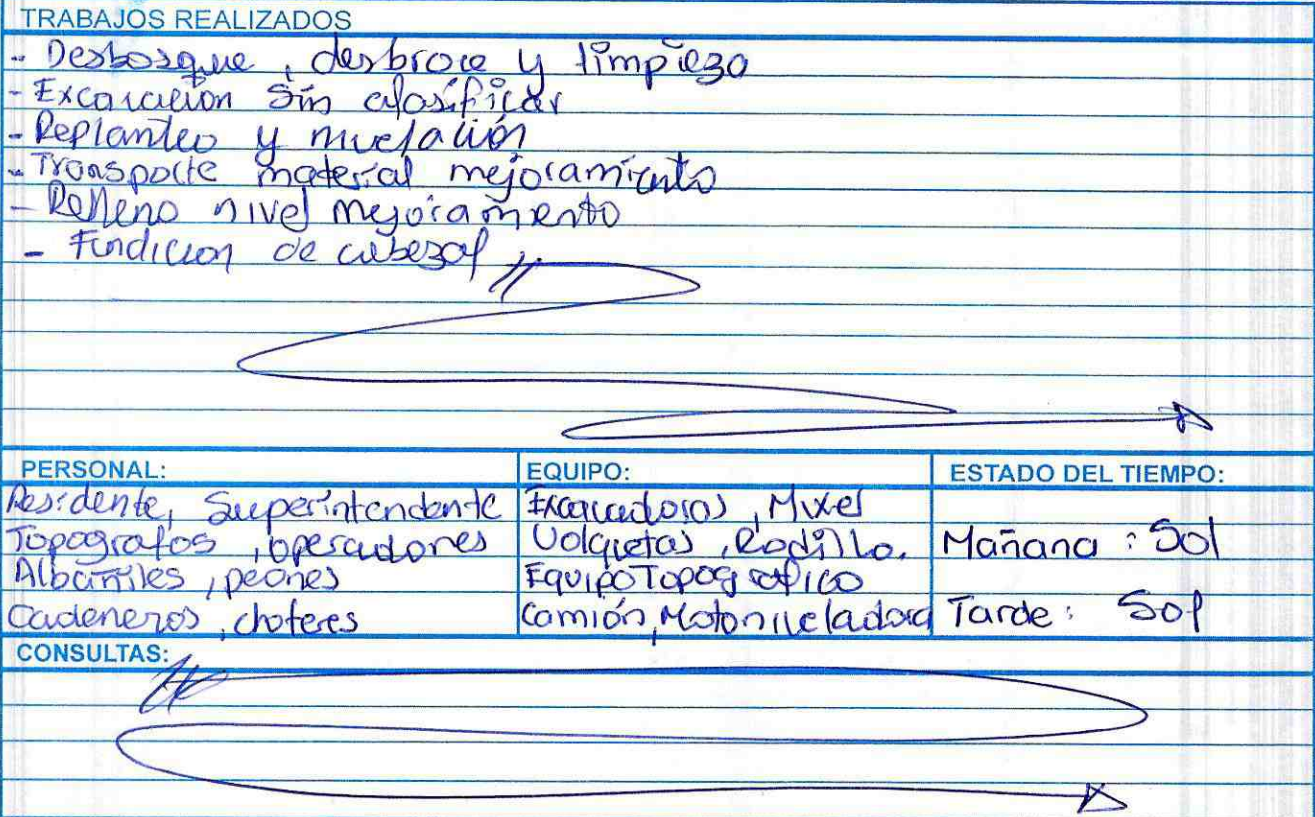 TRABAJOS REALIZADOS
- Desbosque, desbroce y limpieza
- Excavación sin clasificar
- Replanteo y nivelación
- Transporte material mejoramiento
- Relleno nivel mejoramiento
- Fundicion de cabezal
PERSONAL: EQUIPO: ESTADO DEL TIEMPO:
Residente, Superintendente Excavadoras, Mixer
Topografos, operadores Volquetas, Rodillo. Mañana : Sol
Albañiles, peones Equipo Topografico
Cadeneros, choferes Camión, Motoniveladora Tarde: Sol
CONSULTAS: